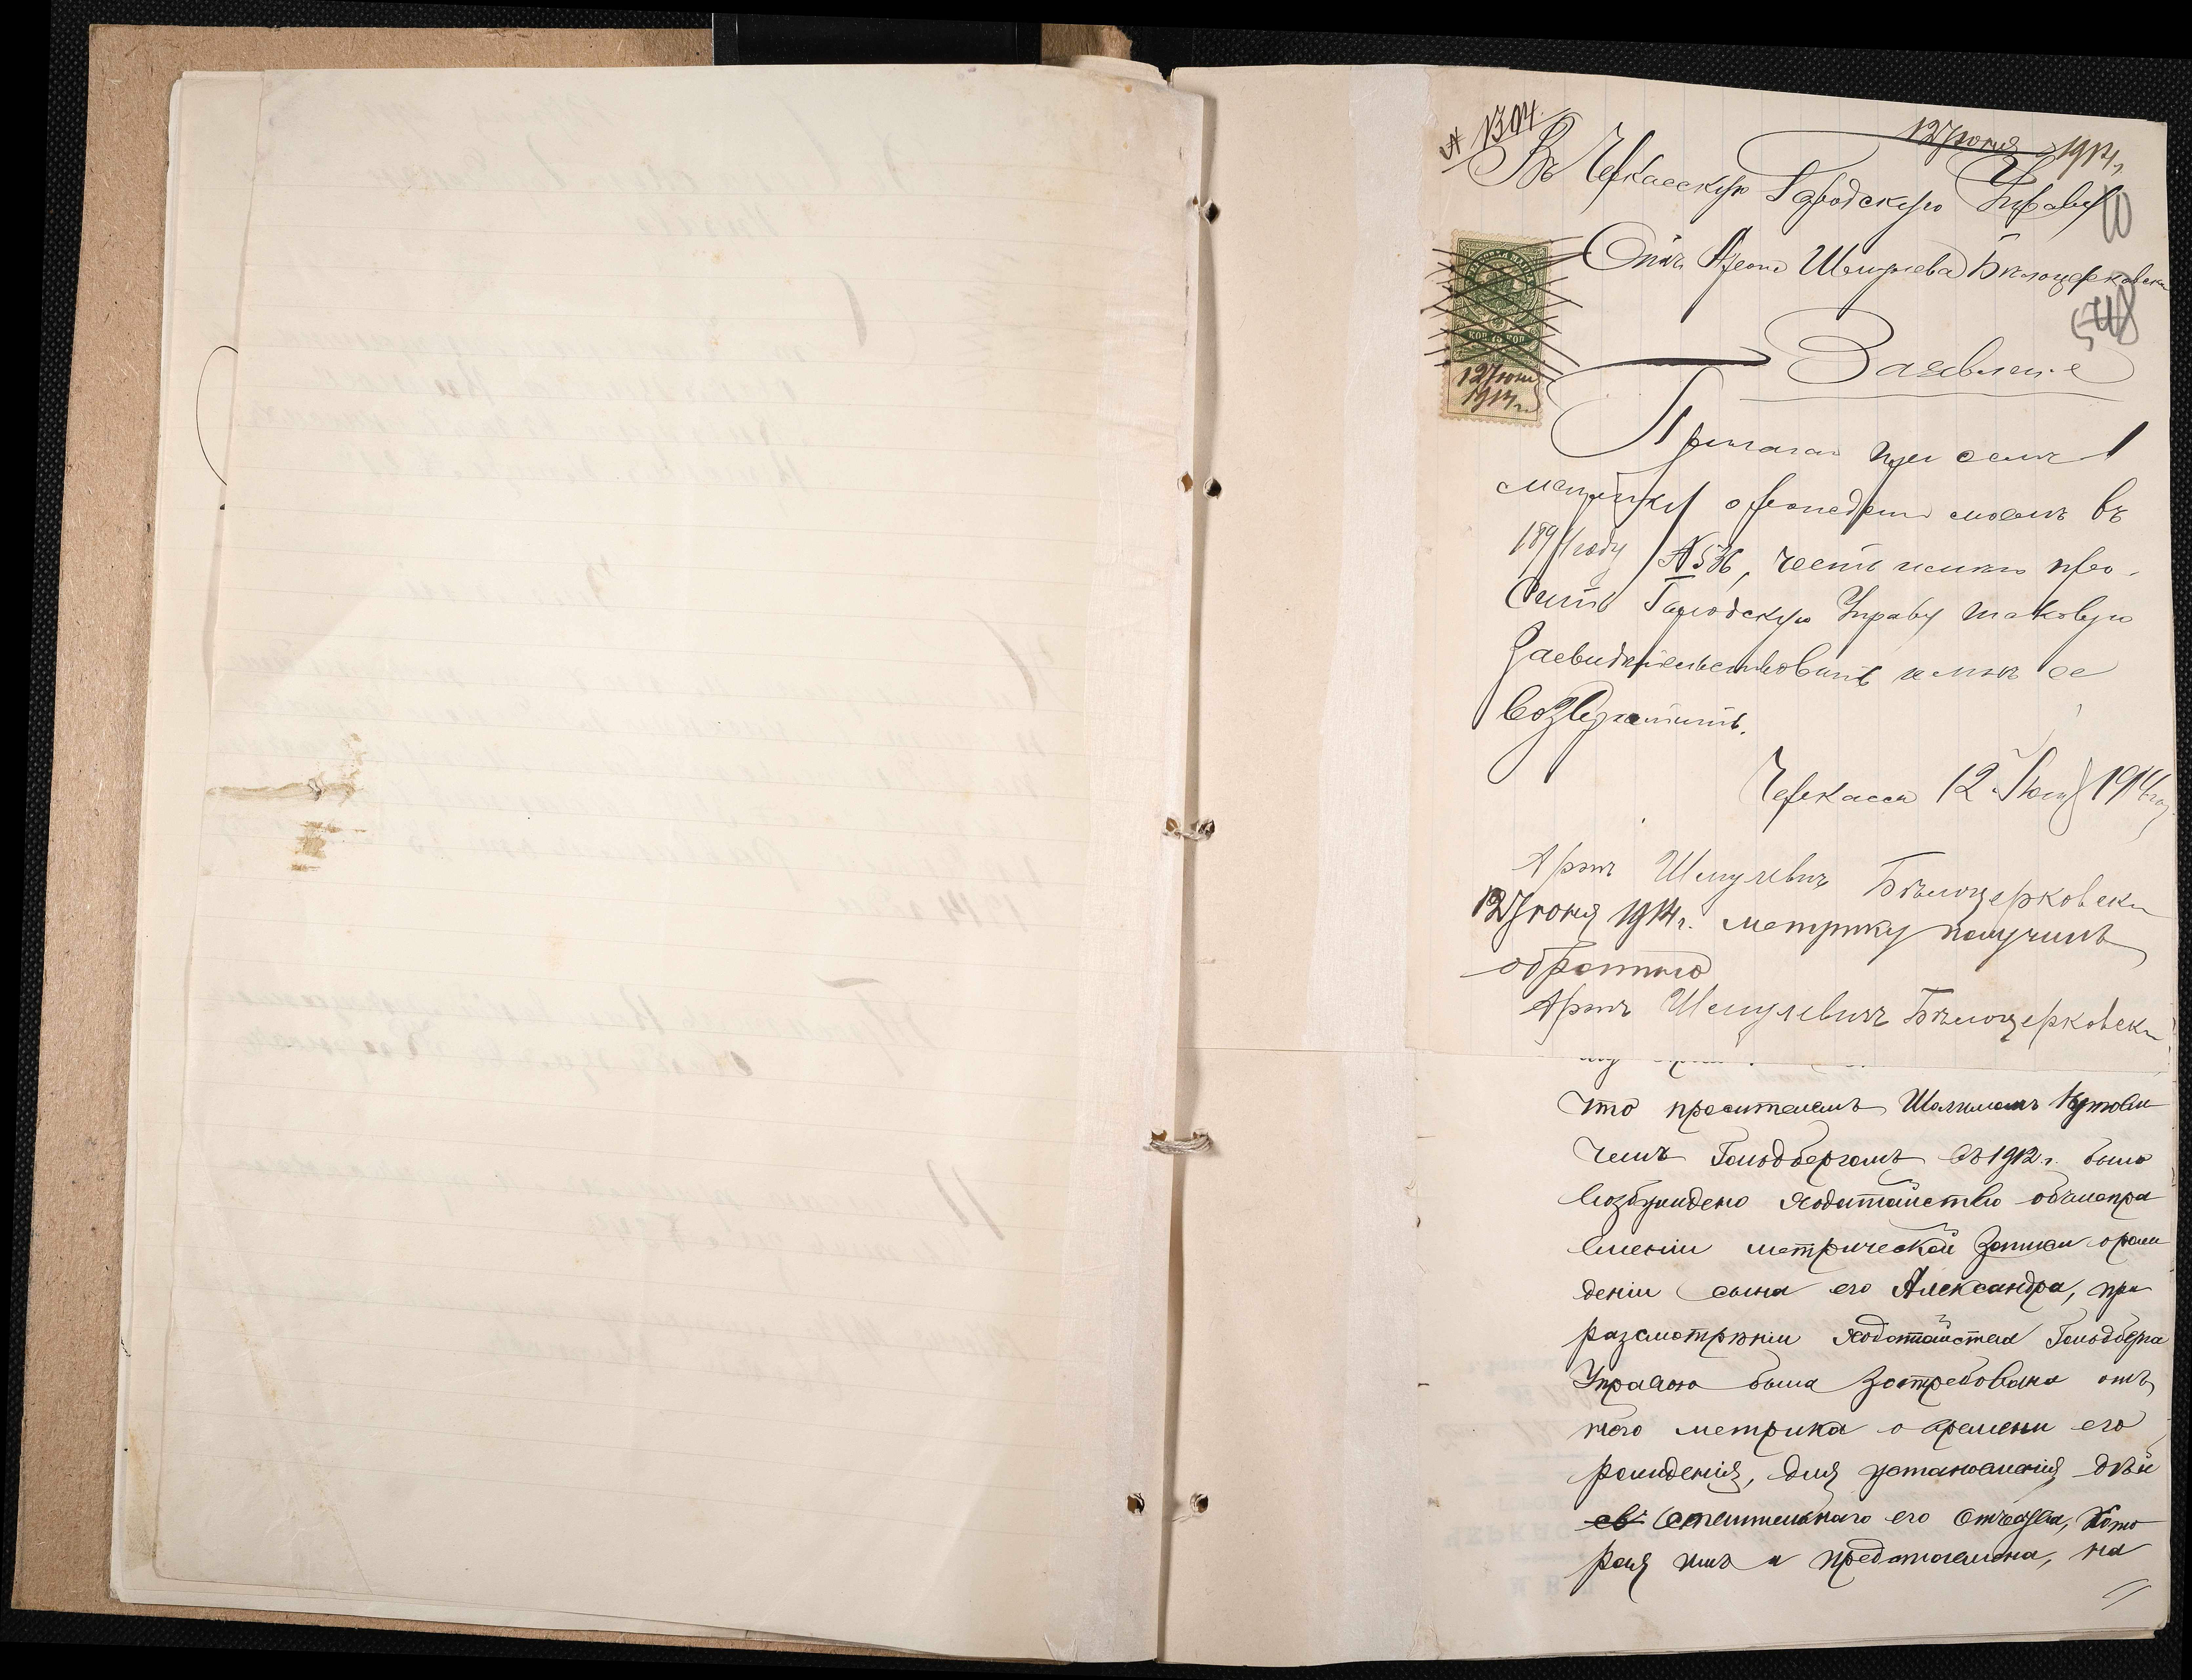 № 1304.
12 Іюня 1914 г.
Въ Черкасскую Городскую Управу
10
Отъ Арона Шмулева Бѣлоцерковски
548
Заявленіе
КОП. 75 КОП.
12 Іюня
1914 г.
Прилагая при семъ
метрику о рожденіи моемъ въ
1891 году № 536, честь имѣю про-
сить Городскую Управу таковую
засвидѣтельствовать и мнѣ ее
возвратить.
Черкассы 12 Іюня 1914 год
Аронъ Шмулевичъ Бѣлоцерковски
12 Іюня 1914 г. метрику получилъ
обратно
Аронъ Шмулевичъ Бѣлоцерковски
что просителемъ
чемъ Гольдбергомъ въ 1912 г. было
возбуждено ходатайство объ испра
вленіи метрической записи о рож
деніи сына его Александра, при
разсмотрѣніи ходатайства Гольдберга
Управою была затребована отъ
него метрика о времени его
рожденія, для установленія дѣй
ствительнаго его отчества, кото
рая имъ и представлена, на